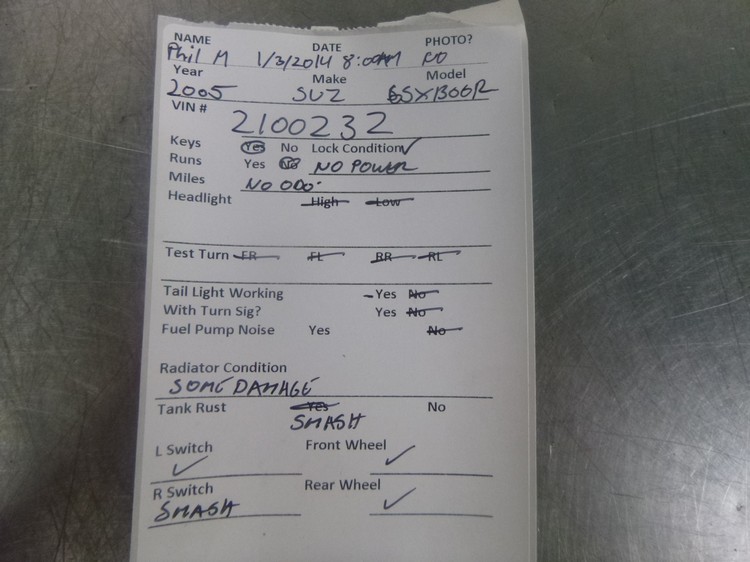 NAME DATE PHOTO?
Phil M 1/3/2014 8:00AM NO
Year Make Model
2005 SUZ GSX1300R
VIN #
2100232
Keys Yes No Lock Condition ✓
Runs Yes No NO POWER
Miles NO ODO.
Headlight High Low
Test Turn FR FL RR RL
Tail Light Working Yes No
With Turn Sig? Yes No
Fuel Pump Noise Yes No
Radiator Condition
SOME DAMAGE
Tank Rust Yes No
SMASH
L Switch Front Wheel
✓ ✓
R Switch Rear Wheel
SMASH ✓